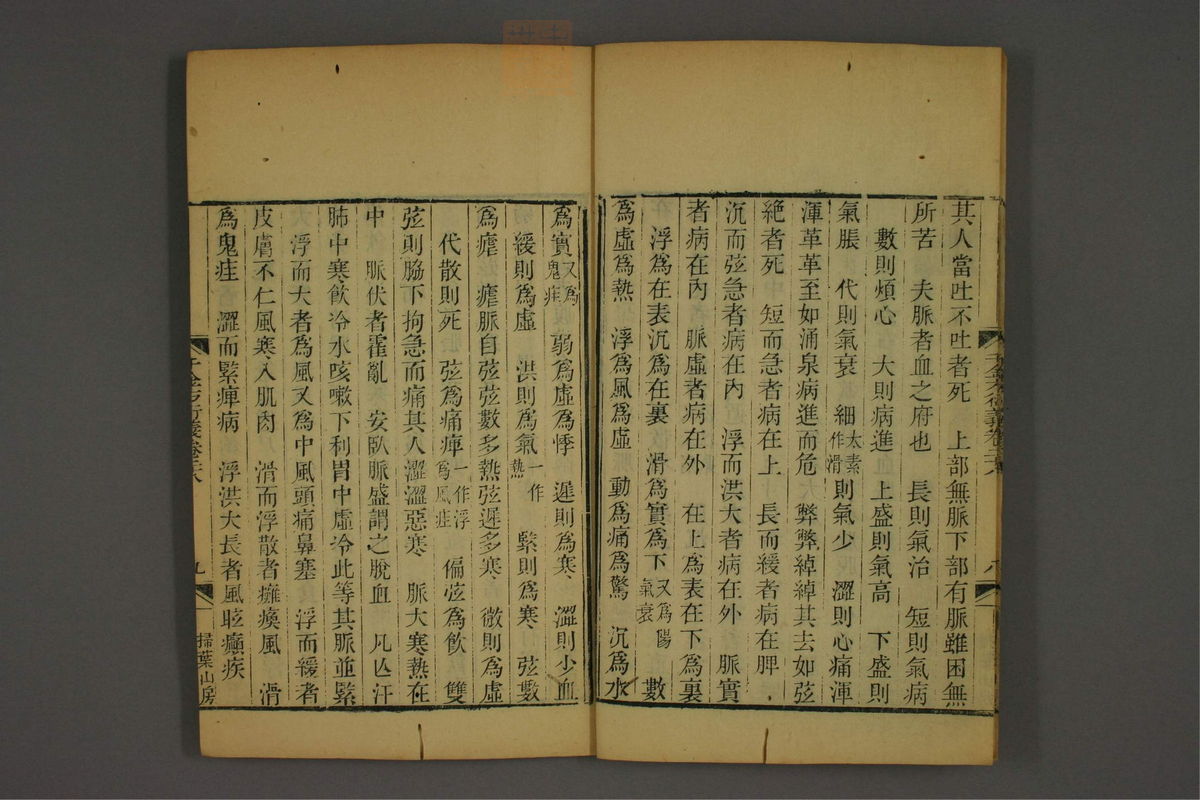 其人當吐不吐者死　上部無脈下部有脈雖困無
所苦　夫脈者血之府也　長則氣治　短則氣病
數則煩心　大則病進　上盛則氣高　下盛則
氣脹　代則氣衰　細太素作滑則氣少　澀則心痛渾
渾革革至如涌泉病進而危　弊弊綽綽其去如弦
絶者死　短而急者病在上　長而緩者病在脾
沉而弦急者病在內　浮而洪大者病在外　脈實
者病在內　脈虛者病在外　在上爲表在下爲裏
浮爲在表沉爲在裏　滑爲實爲下又爲陽氣衰　數
爲虛爲熱　浮爲風爲虛　動爲痛爲驚　沉爲水
爲實又爲鬼疰　弱爲虛爲悸　遲則爲寒　澀則少血
緩則爲虛　洪則爲氣一作熱　緊則爲寒　弦數
爲瘧　瘧脈自弦弦數多熱弦遲多寒　微則爲虛
代散則死　弦爲痛痺一作浮爲風疰　偏弦爲飲　雙
弦則脇下拘急而痛其人澀澀惡寒　脈大寒熱在
中　脈伏者霍亂　安臥脈盛謂之脫血　凡亡汗
肺中寒飲冷水咳嗽下利胃中虛冷此等其脈並緊
浮而大者爲風又爲中風頭痛鼻塞　浮而緩者
皮膚不仁風寒入肌肉　滑而浮散者癱瘓風　滑
爲鬼疰　澀而緊痺病　浮洪大長者風眩癲疾
千金方衍義卷二十八
九
掃葉山房